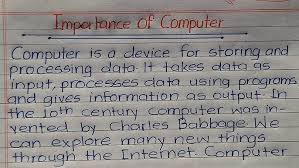 Importance of Computer
Computer is a device for storing and
processing data. It takes data as
input, processes data using programs
and gives information as output. In
the 10th century computer was in-
vented by Charles Babbage. We
can explore many new things
through the Internet. Computer